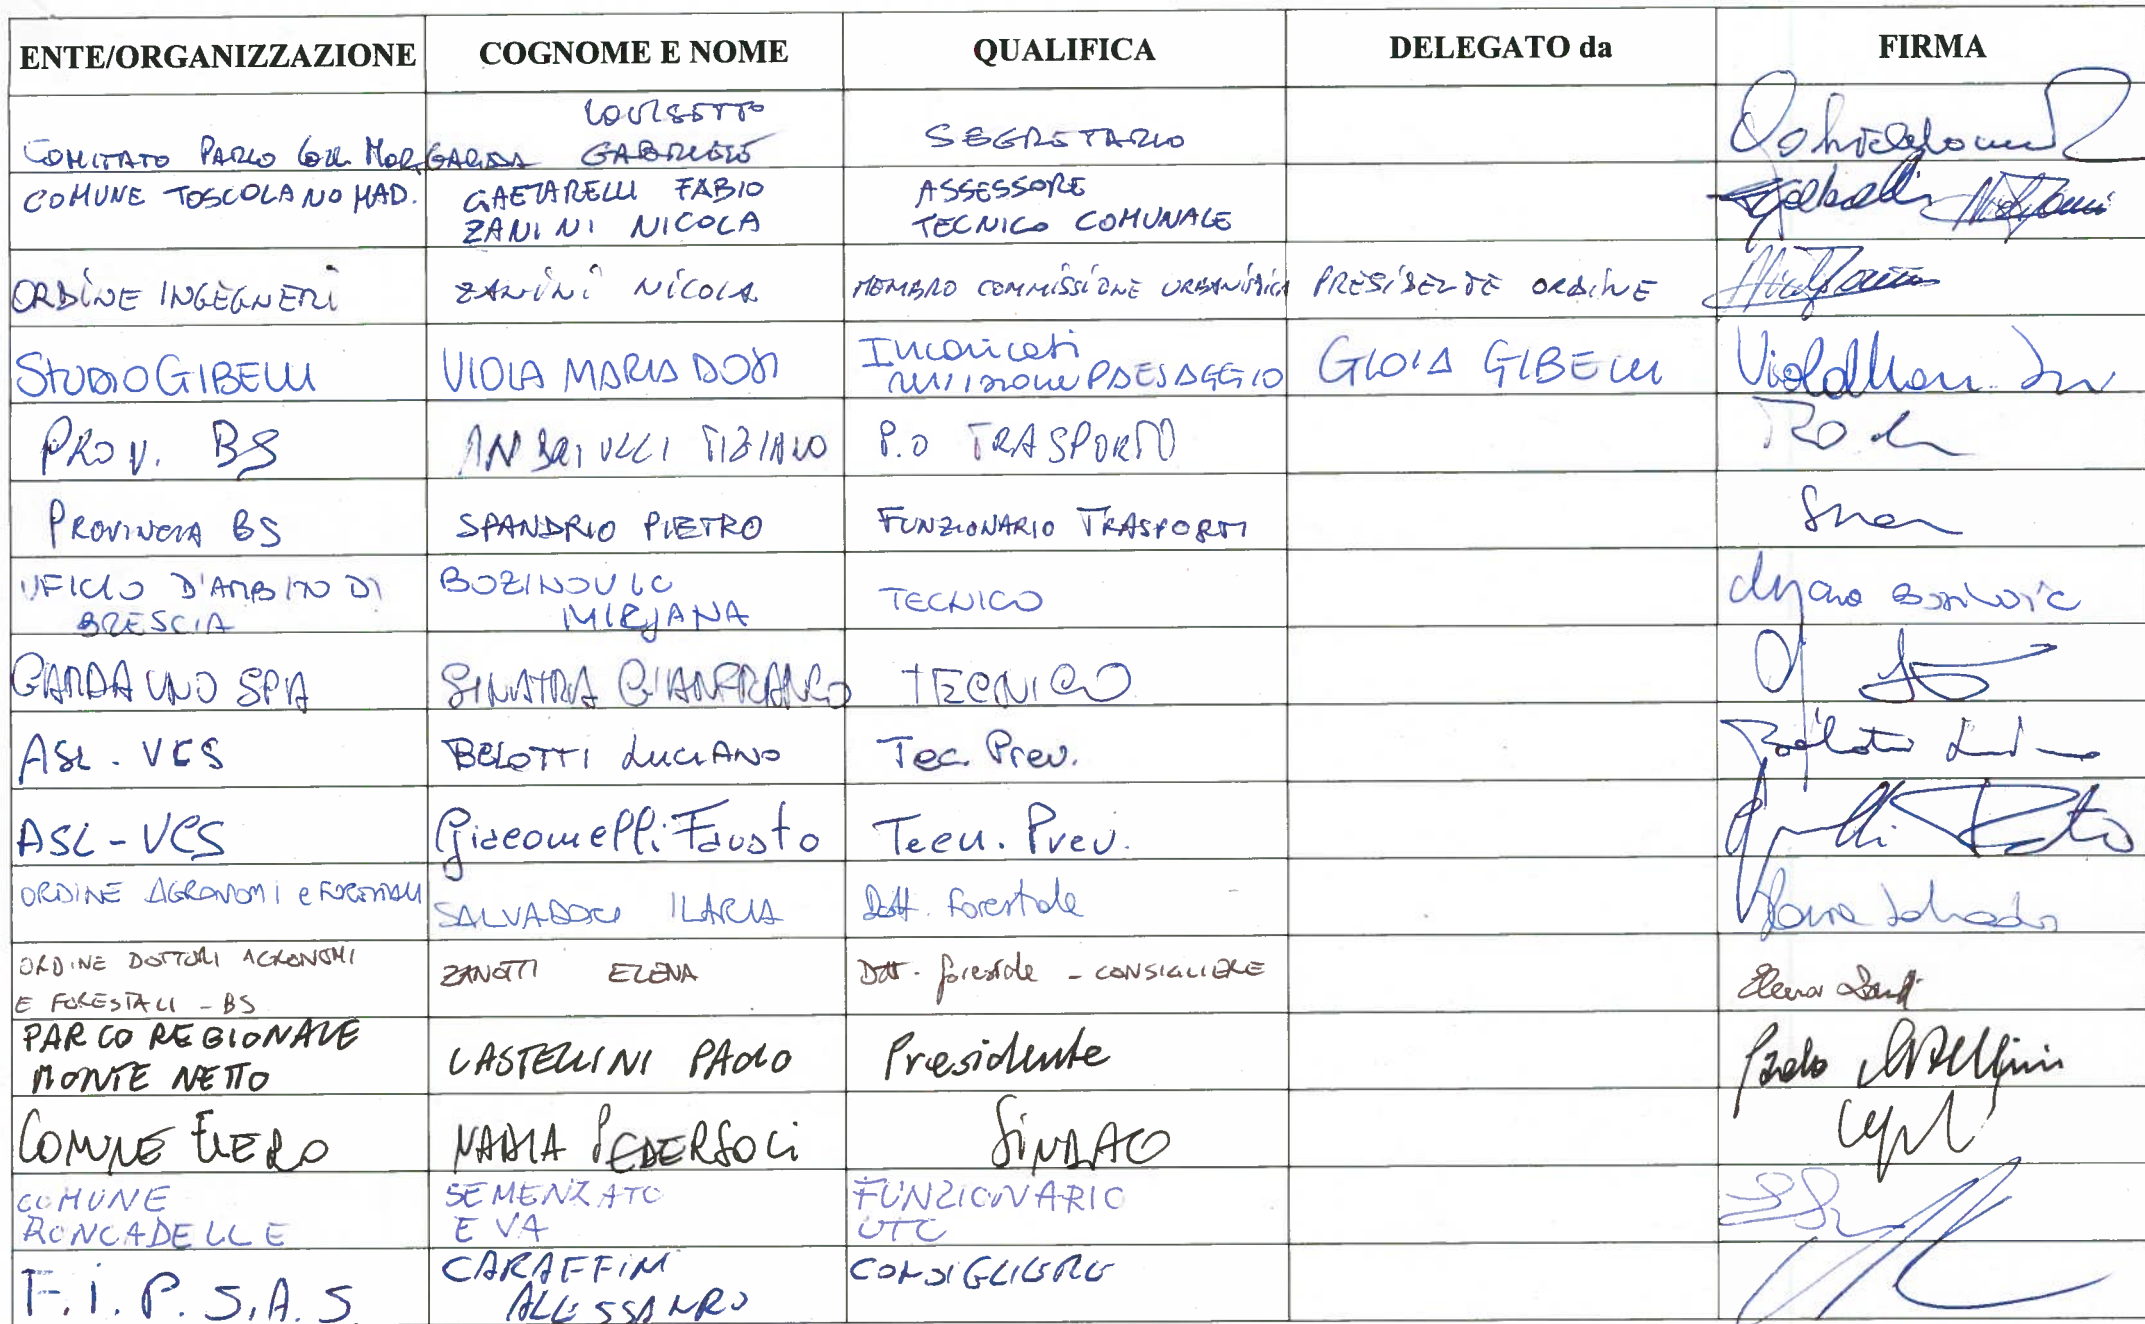 ENTE/ORGANIZZAZIONE COGNOME E NOME QUALIFICA DELEGATO da FIRMA
COMITATO PARCO COLL. MOR. GARDA LOVISETTO GABRIELE SEGRETARIO
COMUNE TOSCOLANO MAD. GAETARELLI FABIO ASSESSORE
ZANINI NICOLA TECNICO COMUNALE
ORDINE INGEGNERI ZANINI NICOLA MEMBRO COMMISSIONE URBANISTICA PRESIDENTE ORDINE
STUDIO GIBELLI VIOLA MARIA DOSI Incaricati PAESAGGIO GIOIA GIBELLI Viola Maria
PROV. BS TIZIANO P.O TRASPORTO
PROVINCIA BS SPANDRIO PIETRO FUNZIONARIO TRASPORTI
UFICIO D'AMBITO DI BRESCIA BOZINOVIC MIRJANA TECNICO
GARDA UNO SPA SINATRA GIANFRANCO TECNICO
ASL - VCS BELOTTI LUCIANO Tec. Prev.
ASL - VCS Giacomelli Fausto Tecn. Prev.
ORDINE AGRONOMI e FORESTALI SALVADORI ILARIA Dott. Forestale
ORDINE DOTTORI AGRONOMI E FORESTALI - BS ZANOTTI ELENA Dott. forestale - CONSIGLIERE Elena
PARCO REGIONALE MONTE NETTO CASTELLINI PAOLO Presidente Paolo Castellini
COMUNE FLERO NADIA PEDERSOLI SINDACO
COMUNE RONCADELLE SEMENZATO EVA FUNZIONARIO UTC
F.I.P.S.A.S. CARAFFINI ALESSANDRO CONSIGLIERE